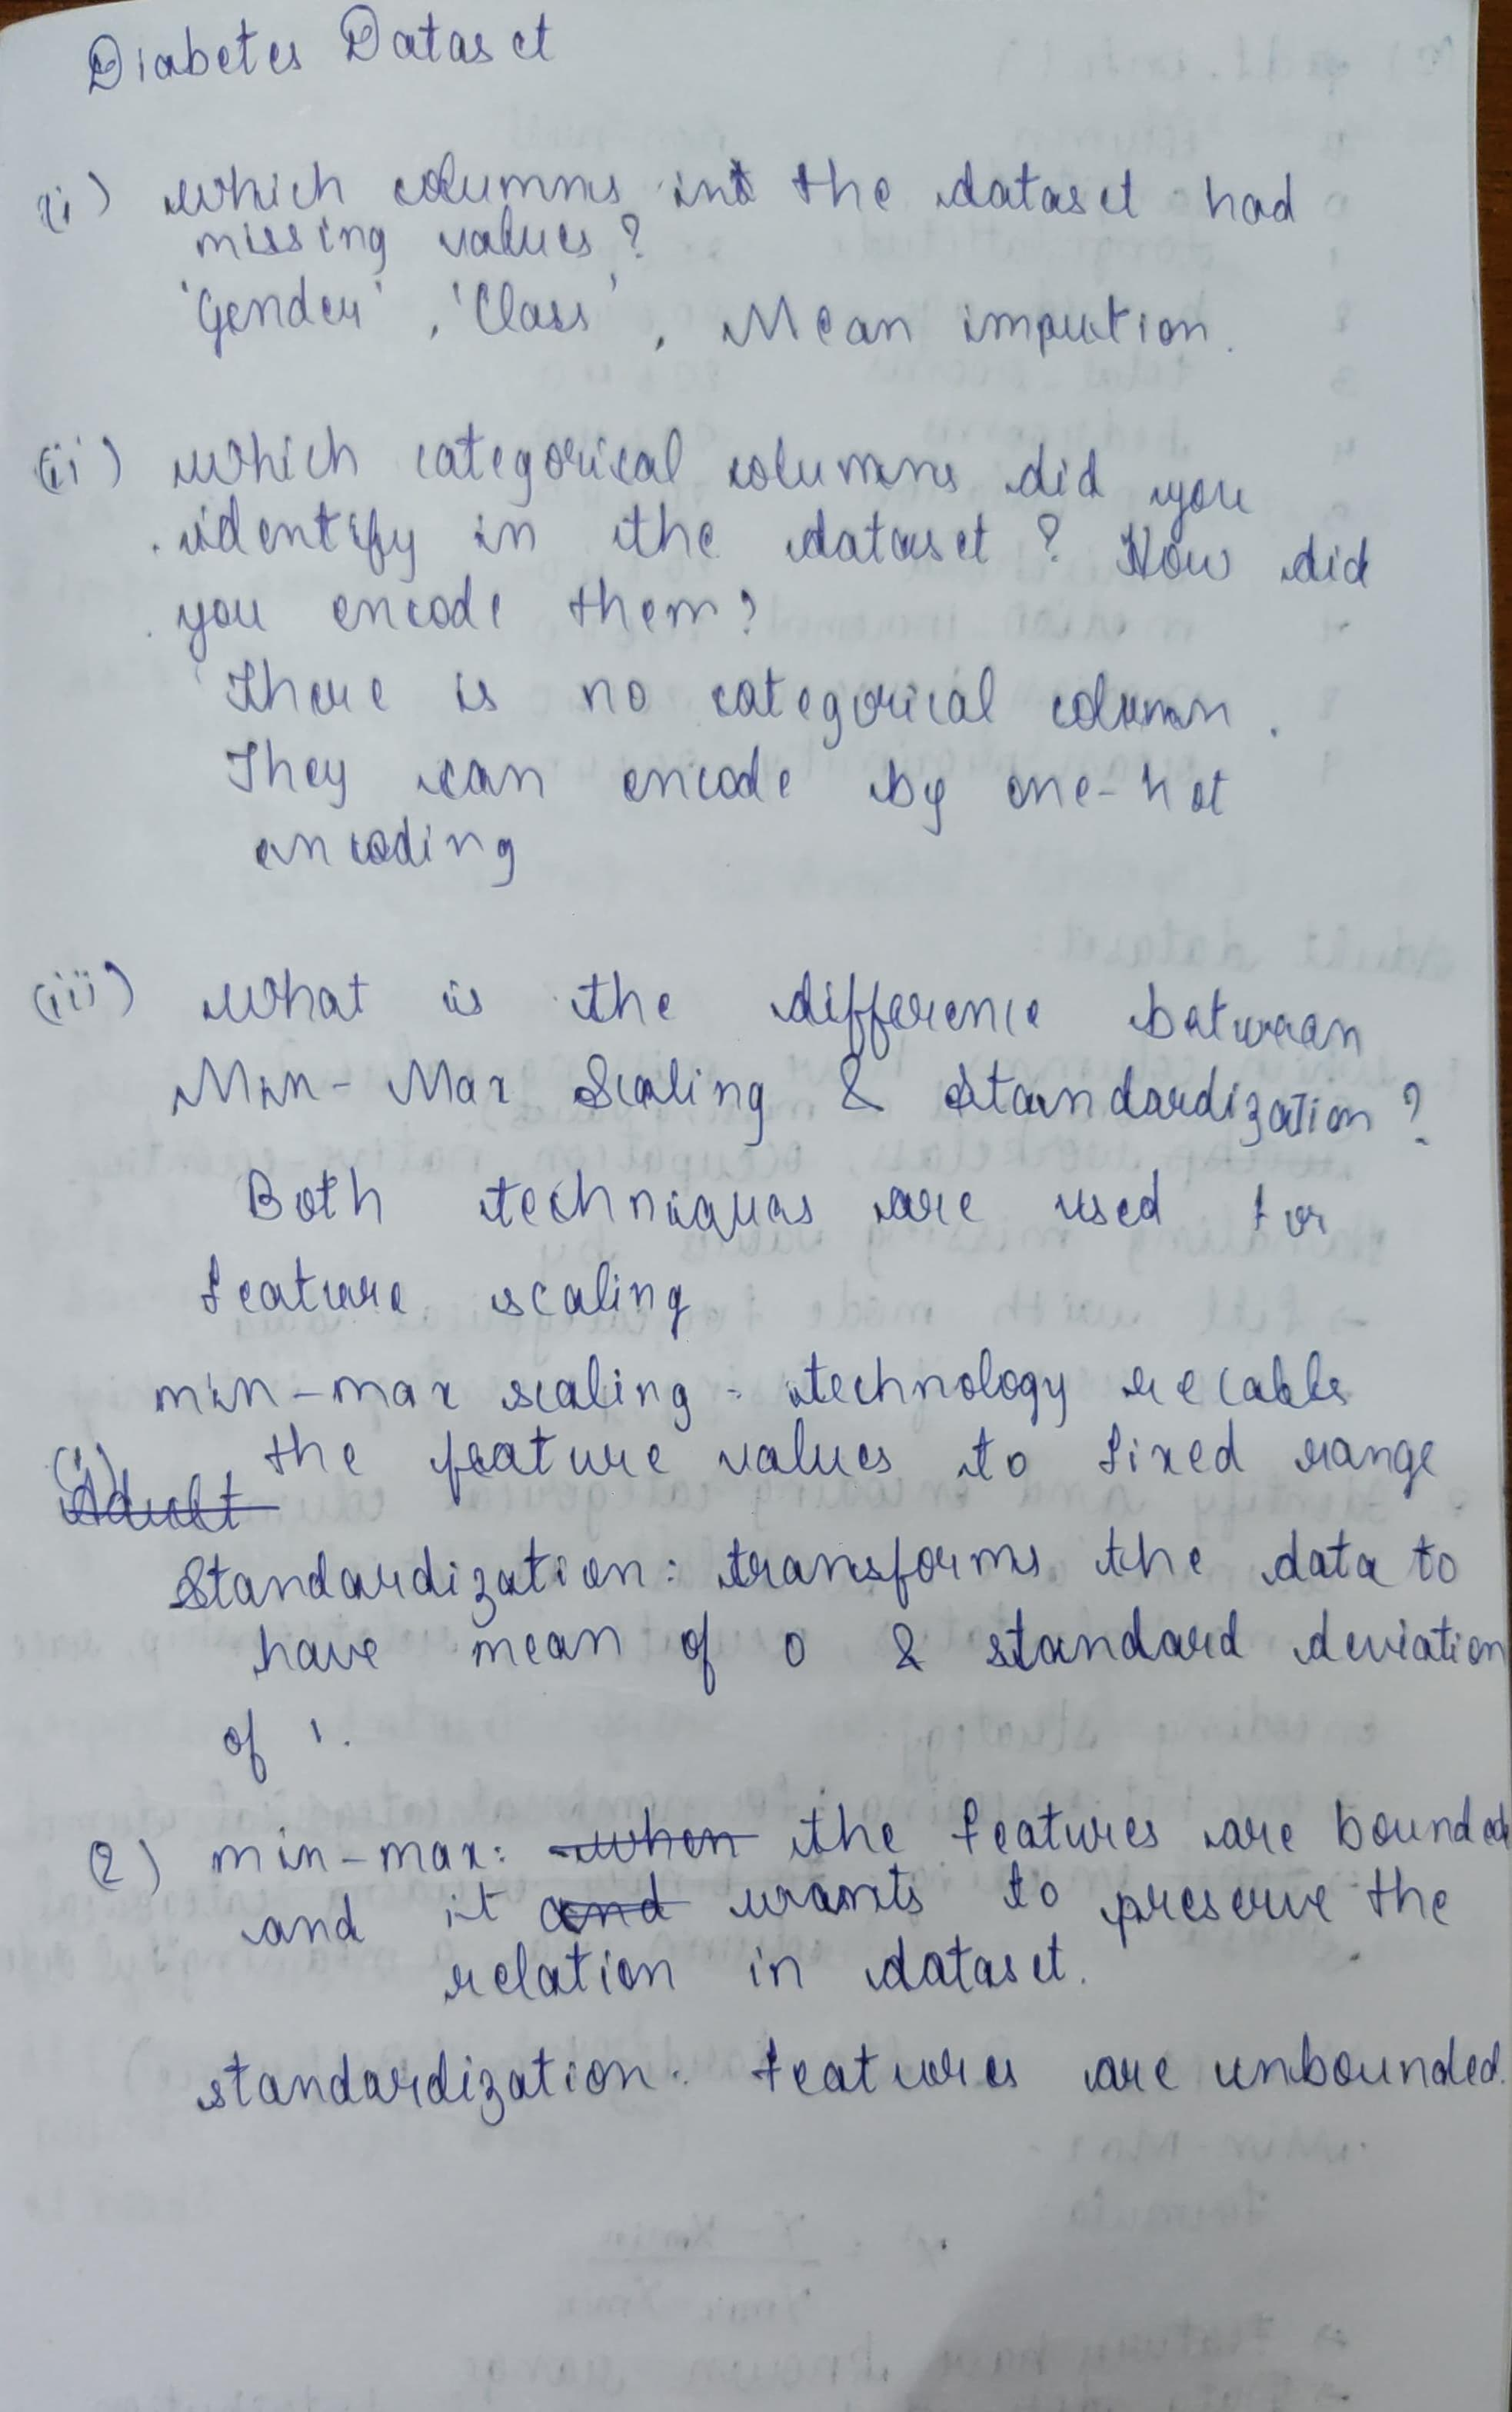 Diabetes Dataset
(i) which columns in the dataset had
missing values?
'Gender', 'Class', Mean impution.
(ii) which categorical columns did you
identify in the dataset? How did
you encode them?
There is no categorical column.
They can encode by one-hot
encoding
(iii) What is the difference between
Min-Max Scaling & Standardization?
Both techniques are used for
feature scaling
min-max scaling - technology
(1) the feature values to fixed range
Adult
Standardization: transforms the data to
have mean of 0 & standard deviation
of 1.
(2) min-max: when the features are bounded
and it and wants to preserve the
relation in dataset.
standardization. features are unbounded.